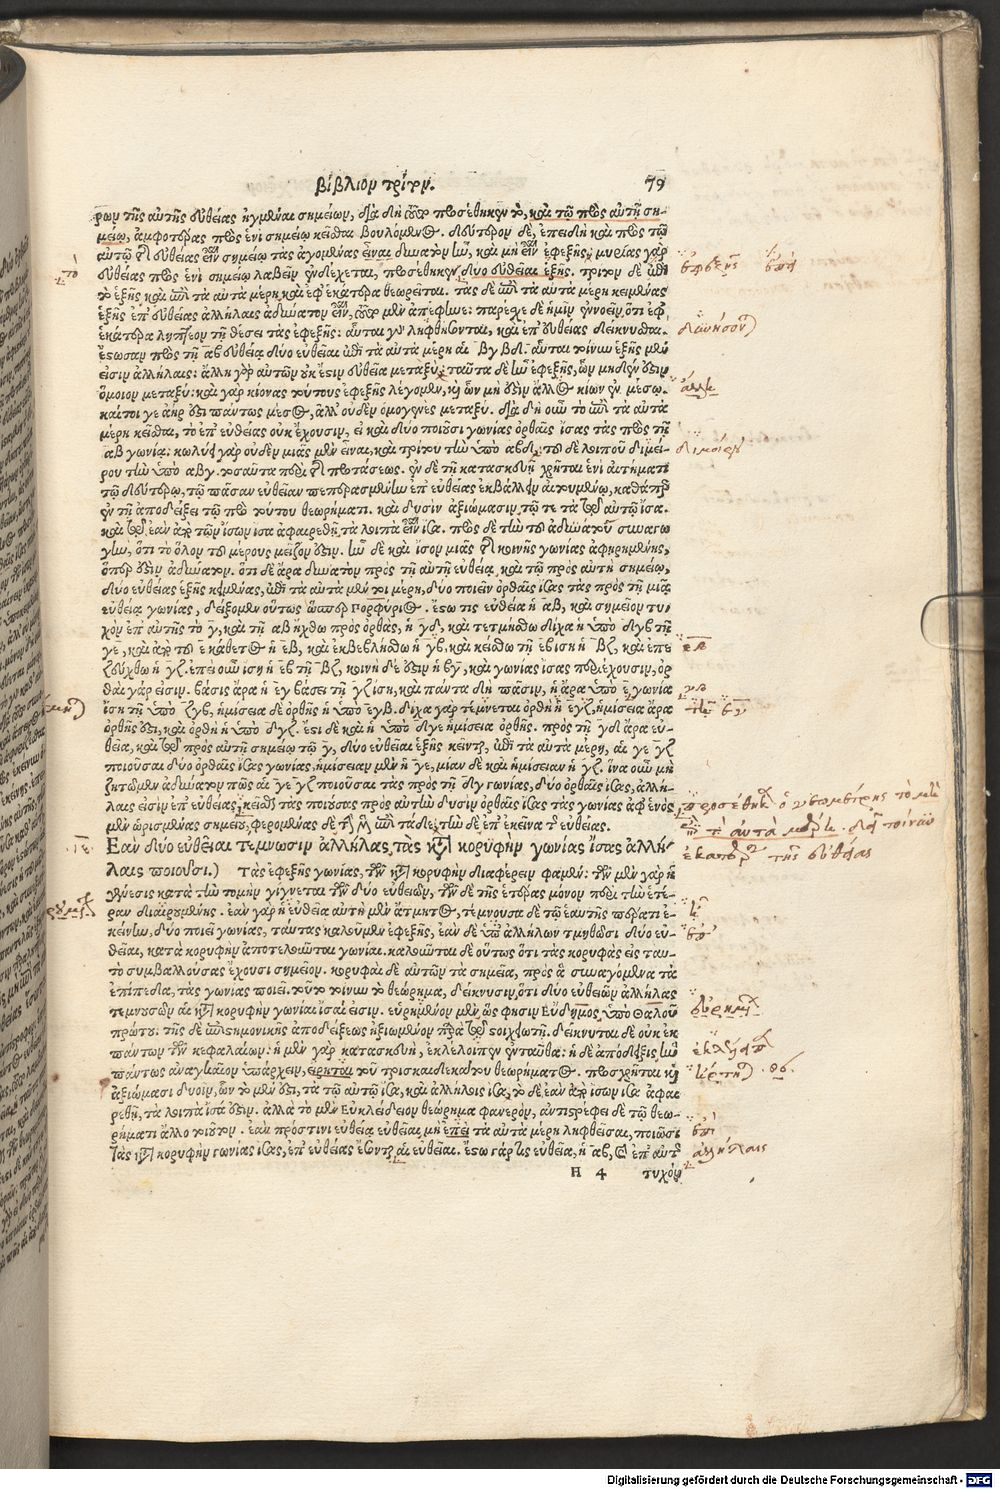 βιβλίον τρίτον. 79
ρων τῆς αὐτῆς εὐθείας ἠγμέναι σημείων, διὰ δὴ τοῦτο προσέθηκεν τὸ, καὶ τῷ πρὸς αὐτῇ ση-
μείῳ, ἀμφοτέρας πρὸς ἑνὶ σημείῳ κεῖσθαι βουλόμενος. δεύτερον δὲ, ἐπειδὴ καὶ πρὸς τῷ
αὐτῷ τῆς εὐθείας εἶναι σημείῳ τὰς ἀγομένας δυνατὸν ἦν, καὶ μὴ εἶναι ἐφεξῆς, μυρίας γὰρ
εὐθείας πρὸς ἑνὶ σημείῳ λαβεῖν ἐνδέχεται, προσέθηκεν δύο εὐθεῖαι ἑξῆς. τρίτον δὲ ἐπὶ
τὸ ἑξῆς καὶ ἐπὶ τὰ αὐτὰ μέρη, καὶ ἐφ' ἑκάτερα θεωρεῖται. τὰς δὲ ἐπὶ τὰ αὐτὰ μέρη κειμένας
ἑξῆς ἐπ' εὐθείας ἀλλήλαις ἀδύνατον εἶναι, τοῦτο μὲν ἀπέφηνε: παρέσχε δὲ ἡμῖν ἐννοεῖν, ὅτι ἐφ'
ἑκάτερα ληπτέον τῇ θέσει τὰς ἐφεξῆς: αὗται γὰρ ληφθήσονται, καὶ ἐπ' εὐθείας δείκνυσθαι.
ἔστωσαν πρὸς τῇ αβ εὐθείᾳ δύο εὐθεῖαι ἐπὶ τὰ αὐτὰ μέρη αἱ βγ βδ. αὗται τοίνυν ἑξῆς μέν
εἰσιν ἀλλήλαις: ἄλλη γὰρ αὐτῶν οὐκ ἔστιν εὐθεῖα μεταξύ: ταῦτα δὲ ἦν ἐφεξῆς, ὧν μηδέν ἐστιν
ὅμοιον μεταξύ: καὶ γὰρ κίονας τούτους ἐφεξῆς λέγομεν, καὶ ὧν μή ἐστιν ἄλλος κίων ἐν μέσῳ.
καίτοι γε ἀήρ ἐστι πάντως μέσος, ἀλλ' οὐδὲν ὁμογενὲς μεταξύ. διὰ δὴ οὖν τὸ ἐπὶ τὰ αὐτὰ
μέρη κεῖσθαι, τὸ ἐπ' εὐθείας οὐκ ἔχουσιν, εἰ καὶ δύο ποιοῦσι γωνίας ὀρθαῖς ἴσας τὰς πρὸς τῇ
αβ γωνία: κωλύει γὰρ οὐδὲν μιᾶς μὲν εἶναι, καὶ τρίτου τὴν ὑπὸ αβδ, τοῦ δὲ λοιποῦ διμεί-
ρου τὴν ὑπὸ αβγ. τοσαῦτα περὶ τῆς προτάσεως. ἐν δὲ τῇ κατασκευῇ χρῆται ἑνὶ αἰτήματι
τῷ δευτέρῳ, τῷ πᾶσαν εὐθεῖαν πεπερασμένην ἐπ' εὐθείας ἐκβάλλειν αἰτουμένῳ, καθάπερ
ἐν τῇ ἀποδείξει τῷ πρὸ τούτου θεωρήματι. καὶ δυσὶν ἀξιώμασιν, τῷ τε τὰ τῷ αὐτῷ ἴσα.
καὶ τῷ ἐὰν ἀπὸ τῶν ἴσων ἴσα ἀφαιρεθῇ, τὰ λοιπὰ εἶναι ἴσα. πρὸς δὲ τὴν τοῦ ἀδυνάτου συναγω
γὴν, ὅτι τὸ ὅλον τοῦ μέρους μεῖζον ἐστιν. ἦν δὲ καὶ ἴσον μιᾶς τῆς κοινῆς γωνίας ἀφῃρημένης,
ὅπερ ἐστὶν ἀδύνατον. ὅτι δὲ ἄρα δυνατὸν πρὸς τῇ αὐτῇ εὐθείᾳ, καὶ τῷ πρὸς αὐτῇ σημείῳ,
δύο εὐθείας ἑξῆς κειμένας, ἐπὶ τὰ αὐτὰ μέντοι μέρη, δύο ποιεῖν ὀρθαῖς ἴσας τὰς πρὸς τῇ μιᾷ
εὐθείᾳ γωνίας, δείξομεν οὕτως ὥσπερ πορφύριος. ἔστω τις εὐθεῖα ἡ αβ, καὶ σημεῖον τυ-
χὸν ἐπ' αὐτῆς τὸ γ, καὶ τῇ αβ ἤχθω πρὸς ὀρθὰς, ἡ γδ, καὶ τετμήσθω δίχα ἡ ὑπὸ δγβ τῇ
γε, καὶ ἀπὸ τοῦ ε κάθετος ἡ εβ, καὶ ἐκβεβλήσθω ἡ γβ, καὶ κείσθω τῇ εβ ἴση ἡ βζ, καὶ ἐπε
ζεύχθω ἡ γζ. ἐπεὶ οὖν ἴση ἡ εβ τῇ βζ, κοινὴ δέ ἐστιν ἡ βγ, καὶ γωνίας ἴσας περιέχουσιν, ὀρ
θαὶ γάρ εἰσιν. βάσις ἄρα ἡ εγ βάσει τῇ γζ ἴση, καὶ πάντα δὴ πᾶσιν, ἡ ἄρα ὑπὸ ε γωνία
ἴση τῇ ὑπὸ ζγβ, ἡμίσεια δὲ ὀρθῆς ἡ ὑπὸ εγβ. δίχα γὰρ τέμνεται ὀρθὴ ἡ εγζ, ἡμίσεια ἄρα
ὀρθῆς ἐστι, καὶ ὀρθὴ ἡ ὑπὸ δγζ. ἔστι δὲ καὶ ἡ ὑπὸ δγε ἡμίσεια ὀρθῆς. πρὸς τῇ γδ ἄρα εὐ-
θείᾳ, καὶ τῷ πρὸς αὐτῇ σημείῳ τῷ γ, δύο εὐθεῖαι ἑξῆς κεῖνται, ἐπὶ τὰ αὐτὰ μέρη, αἱ γε γζ
ποιοῦσαι δύο ὀρθαῖς ἴσας γωνίας, ἡμίσειαν μὲν ἡ γε, μίαν δὲ καὶ ἡμίσειαν ἡ γζ. ἵνα οὖν μὴ
ζητῶμεν ἀδύνατον πῶς αἱ γε γζ ποιοῦσαι τὰς πρὸς τῇ δγ γωνίας, δύο ὀρθαῖς ἴσας, ἀλλή-
λαις εἰσὶν ἐπ' εὐθείας, κεῖσθαι τὰς ποιούσας πρὸς αὐτὴν δυσὶν ὀρθαῖς ἴσας τὰς γωνίας ἀφ' ἑνὸς
μὲν ὡρισμένας σημείου, φερομένας δὲ τὴν μὲν ἐπὶ τάδε, τὴν δὲ ἐπ' ἐκεῖνα τῆς εὐθείας.
Ἐὰν δύο εὐθεῖαι τέμνωσιν ἀλλήλας, τὰς κατὰ κορυφὴν γωνίας ἴσας ἀλλή-
λαις ποιοῦσι.) τὰς ἐφεξῆς γωνίας, τῶν κατὰ κορυφὴν διαφέρειν φαμέν: τῶν μὲν γὰρ ἡ
γένεσις κατὰ τὴν τομὴν γίγνεται τῶν δύο εὐθειῶν, τῶν δὲ τῆς ἑτέρας μόνον περὶ τὴν ἑτέ-
ραν διαιρουμένης. ἐὰν γὰρ ἡ εὐθεῖα αὐτὴ μὲν ἄτμητος, τέμνουσα δὲ τῷ ἑαυτῆς πέρατι ἐ-
κείνην, δύο ποιεῖ γωνίας, ταύτας καλοῦμεν ἐφεξῆς, ἐὰν δὲ ὑπ' ἀλλήλων τμηθῶσι δύο εὐ-
θεῖαι, κατὰ κορυφὴν ἀποτελοῦνται γωνίαι. καλοῦνται δὲ οὕτως ὅτι τὰς κορυφὰς εἰς ταυ-
τὸ συμβαλλούσας ἔχουσι σημεῖον. κορυφαὶ δὲ αὐτῶν τὰ σημεῖα, πρὸς ἃ συναγόμενα τὰ
ἐπίπεδα, τὰς γωνίας ποιεῖ. τοῦτο τοίνυν τὸ θεώρημα, δείκνυσιν, ὅτι δύο εὐθειῶν ἀλλήλας
τεμνουσῶν αἱ κατὰ κορυφὴν γωνίαι ἴσαί εἰσιν. εὑρημένον μὲν ὥς φησιν Εὔδημος ὑπὸ Θαλοῦ
πρώτου: τῆς δὲ ἐπιστημονικῆς ἀποδείξεως ἠξιωμένον παρὰ τῷ στοιχιωτῇ. δείκνυται δὲ οὐκ ἐκ
πάντων τῶν κεφαλαίων: ἡ μὲν γὰρ κατασκευὴ, ἐκλέλοιπεν ἐνταῦθα: ἡ δὲ ἀπόδειξις ἣν
πάντως ἀναγκαῖον ὑπάρχειν, ἤρτηται τοῦ τρισκαιδεκάτου θεωρήματος. προσχρῆται καὶ
ἀξιώμασι δυοῖν, ὧν τὸ μέν ἐστι, τὰ τῷ αὐτῷ ἴσα, καὶ ἀλλήλοις ἴσα, τὸ δὲ ἐὰν ἀπὸ ἴσων ἴσα ἀφαι
ρεθῇ, τὰ λοιπὰ ἴσα ἐστιν. ἀλλὰ τὸ μὲν Εὐκλείδειον θεώρημα φανερὸν, ἀντιστρέφει δὲ τῷ θεω-
ρήματι ἄλλο τοιοῦτον. ἐὰν πρός τινι εὐθείᾳ εὐθεῖαι, μὴ ἐπεὶ τὰ αὐτὰ μέρη ληφθεῖσαι, ποιῶσι
τὰς κατὰ κορυφὴν γωνίας ἴσας, ἐπ' εὐθείας ἔσονται αἱ εὐθεῖαι. ἔστω γάρ τις εὐθεῖα, ἡ αβ, καὶ ἐπ' αὐτῆς
Η 4 τυχὸν
Digitalisierung gefördert durch die Deutsche Forschungsgemeinschaft - DFG